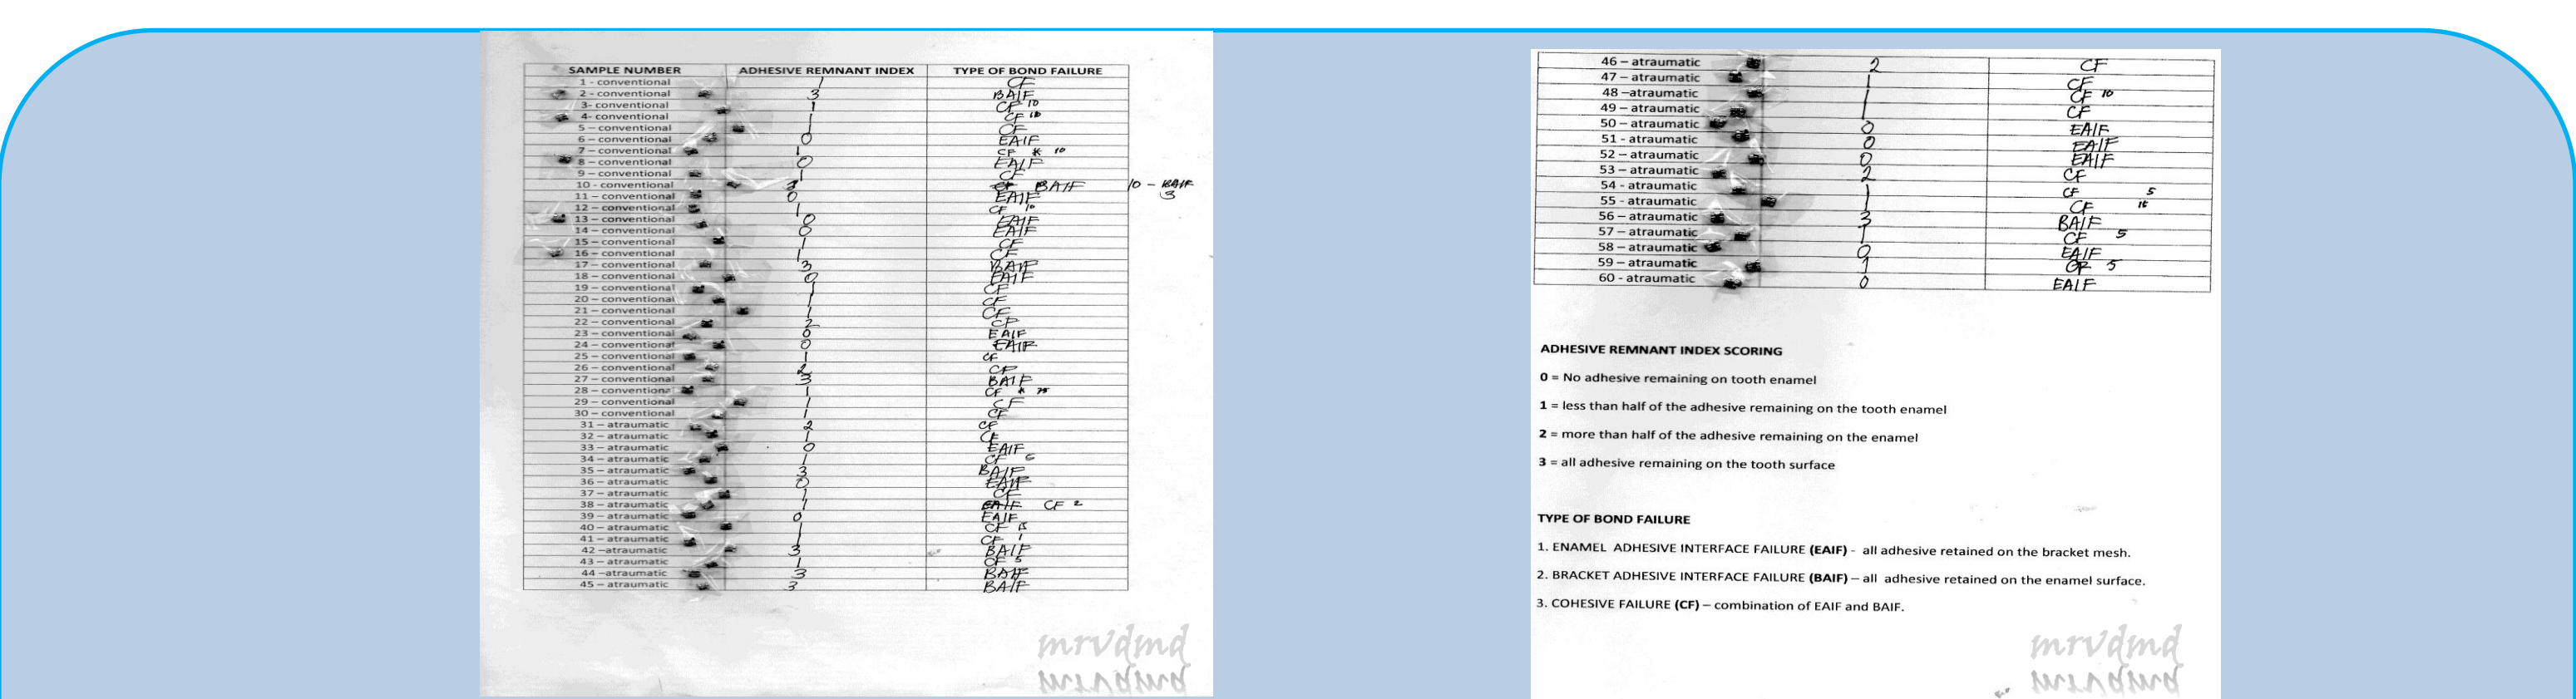 SAMPLE NUMBER ADHESIVE REMNANT INDEX TYPE OF BOND FAILURE
1 - conventional 1 CF
2 - conventional 3 BAIF
3- conventional 1 CF 10
4- conventional 1 CF 10
5 – conventional 1 CF
6 – conventional 0 EAIF
7 – conventional 1 CF * 10
8 – conventional 0 EAIF
9 – conventional 1 CF
10 - conventional BAIF 10 - BAIF
3
11 – conventional 0 EAIF
12 – conventional 1 CF 10
13 – conventional 0 EAIF
14 – conventional 0 EAIF
15 – conventional 1 CF
16 – conventional 1 CF
17 – conventional 3 BAIF
18 – conventional 0 EAIF
19 – conventional 1 CF
20 – conventional 1 CF
21 – conventional 1 CF
22 – conventional 2 CF
23 – conventional 0 EAIF
24 – conventional 0 EAIF
25 – conventional 1 CF
26 – conventional 2 CF
27 – conventional 3 BAIF
28 – conventional 1 CF *
29 – conventional 1 CF
30 – conventional 1 CF
31 – atraumatic 2 CF
32 – atraumatic 1 CF
33 – atraumatic 0 EAIF
34 – atraumatic 1 CF
35 – atraumatic 3 BAIF
36 – atraumatic 0 EAIF
37 – atraumatic 1 CF
38 – atraumatic 1 EAIF CF 2
39 – atraumatic 0 EAIF
40 – atraumatic 1 CF
41 – atraumatic 1 CF 1
42 –atraumatic 3 BAIF
43 – atraumatic 1 CF 5
44 –atraumatic 3 BAIF
45 – atraumatic 3 BAIF
mrvdmd
46 – atraumatic 2 CF
47 – atraumatic 1 CF
48 –atraumatic 1 CF 10
49 – atraumatic 1 CF
50 – atraumatic 0 EAIF
51 - atraumatic 0 EAIF
52 – atraumatic 0 EAIF
53 – atraumatic 2 CF
54 - atraumatic 1 CF 5
55 - atraumatic 1 CF
56 – atraumatic 3 BAIF
57 – atraumatic 1 CF 5
58 – atraumatic 0 EAIF
59 – atraumatic 1 CF 5
60 - atraumatic 0 EAIF
ADHESIVE REMNANT INDEX SCORING
0 = No adhesive remaining on tooth enamel
1 = less than half of the adhesive remaining on the tooth enamel
2 = more than half of the adhesive remaining on the enamel
3 = all adhesive remaining on the tooth surface
TYPE OF BOND FAILURE
1. ENAMEL ADHESIVE INTERFACE FAILURE (EAIF) - all adhesive retained on the bracket mesh.
2. BRACKET ADHESIVE INTERFACE FAILURE (BAIF) – all adhesive retained on the enamel surface.
3. COHESIVE FAILURE (CF) – combination of EAIF and BAIF.
mrvdmd